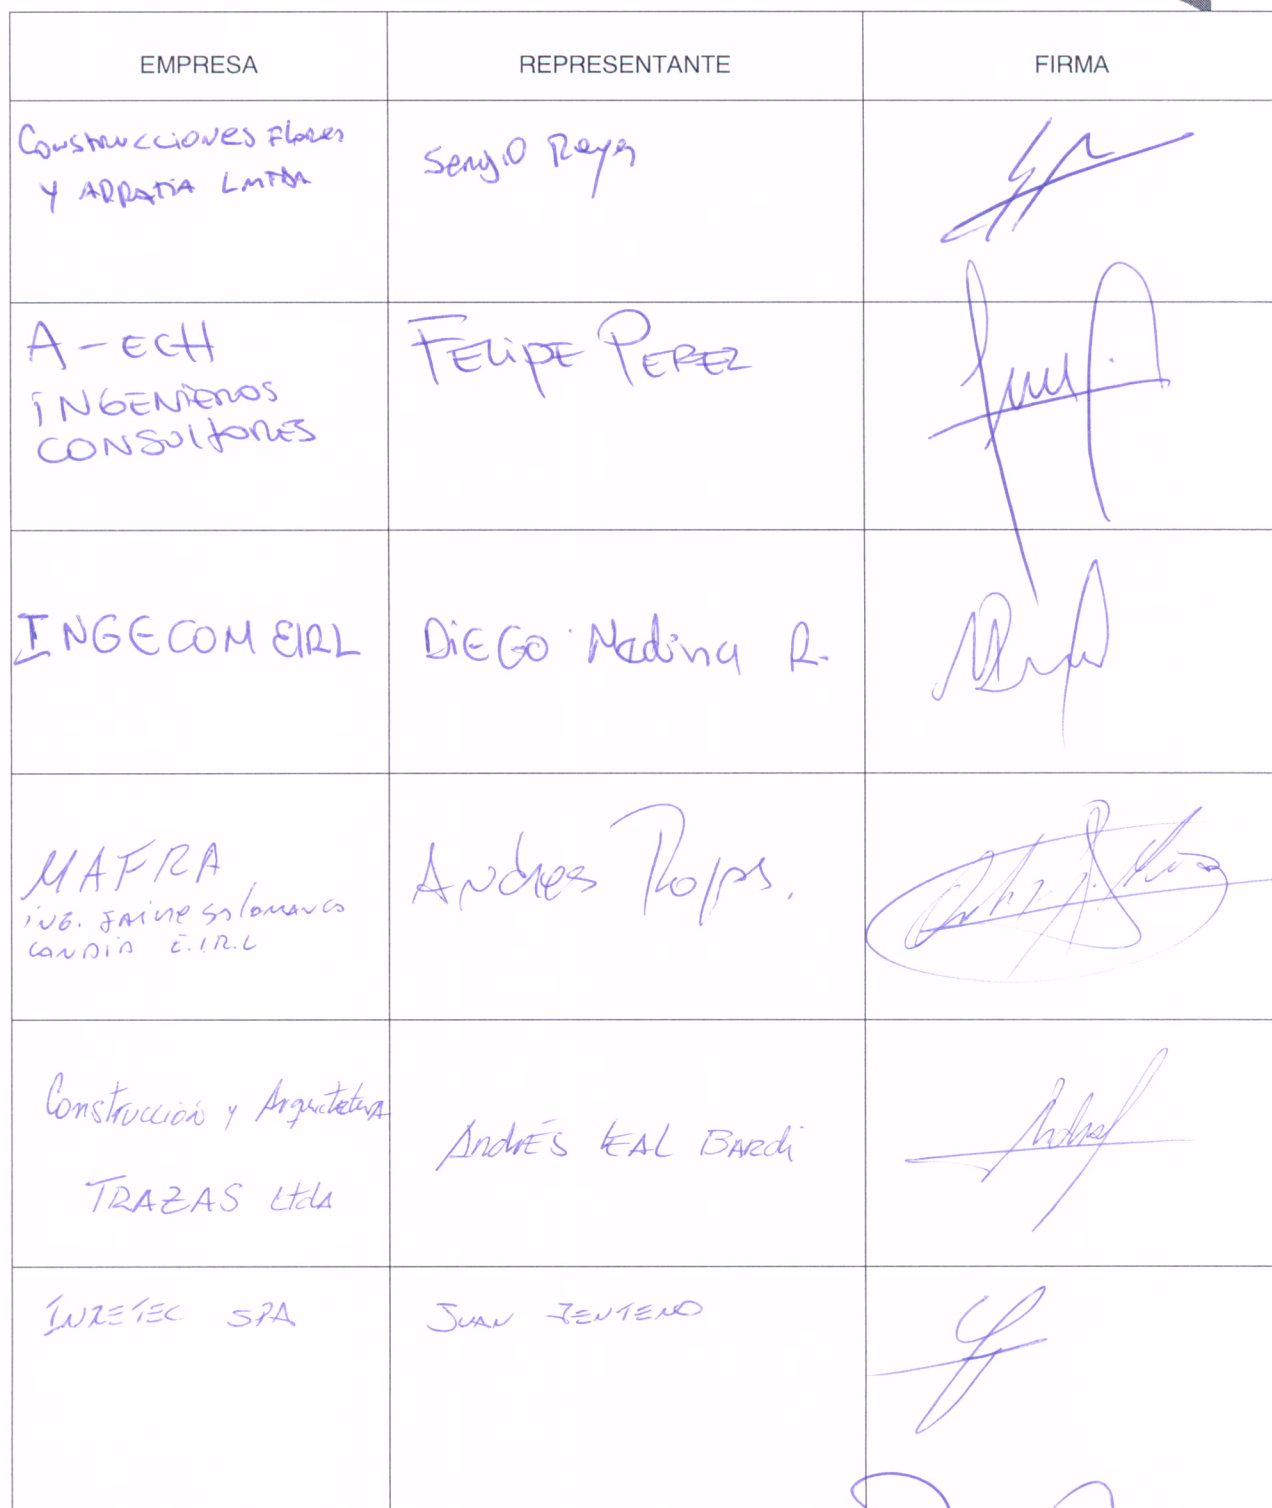 EMPRESA REPRESENTANTE FIRMA
Construcciones Flores
Y ARRATIA LMTDA
Sergio Raya
A-ECH
INGENIEROS
CONSULTORES
FELIPE PEREZ
INGECOM EIRL
DIEGO Medina R.
MAFRA
ING. JAIME SALAMANCA
CANDIA E.I.R.L
Andres
Construcción y Arquitectura
TRAZAS Ltda
Andrés LEAL BARdi
SPA
JUAN ZENTENO